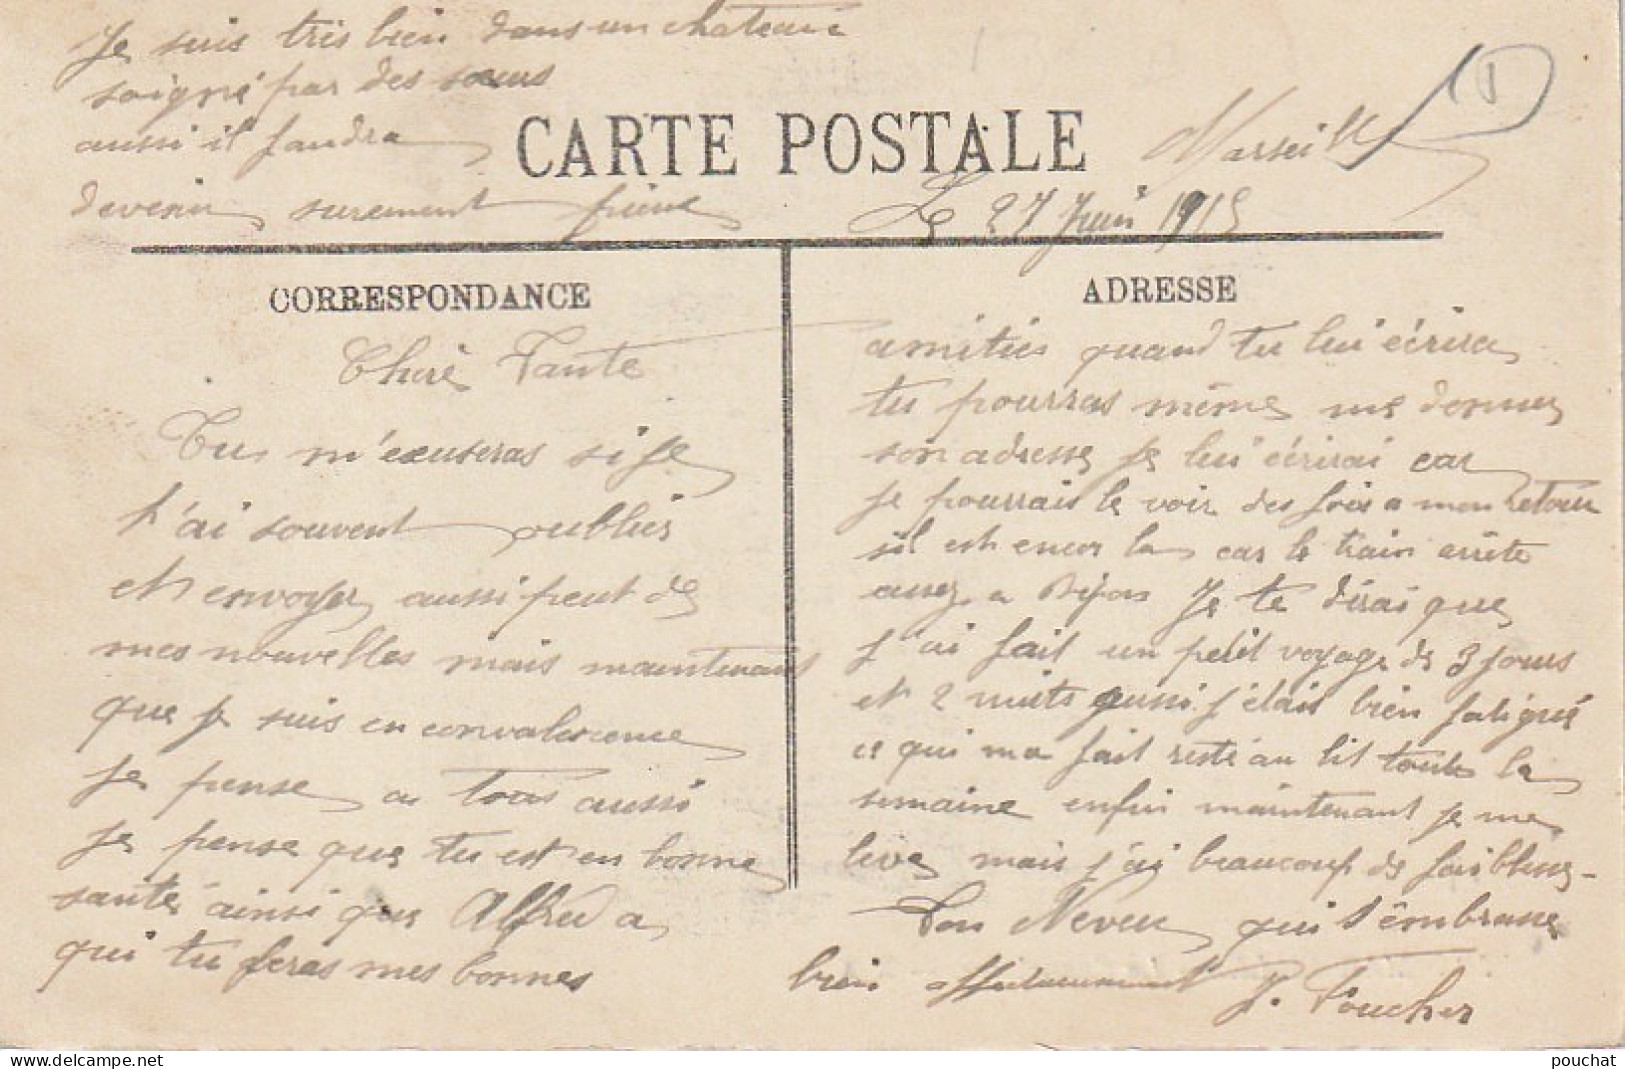 Je suis très bien dans un chateau
soigné par des sœurs
aussi il faudra
devenir surement
CARTE POSTALE
Marseille
Le 27 Juin 1915
CORRESPONDANCE
Chère Tante
Tu m'excuseras si je
t'ai souvent oublier
et envoyer aussi peut de
mes nouvelles mais maintenant
que je suis en convalescence
je pense a tous aussi
je pense que tu est en bonne
santé ainsi que Alfred a
qui tu feras mes bonnes
ADRESSE
amitiés quand tu lui écrira
tu pourras même me donner
son adresse je lui écrirai car
je pourrais le voir des fois a mon retour
sil est encor la car le train arrête
assez a Dijon Je te dirai que
j'ai fait un petit voyage de 3 jours
et 2 nuits aussi j'étais bien fatigué
ce qui ma fait resté au lit toute la
semaine enfin maintenant je me
lève mais j'ai beaucoup de faiblesse -
Ton Neveu qui t'embrasse
bien affectueusement J. Foucher
pouchat